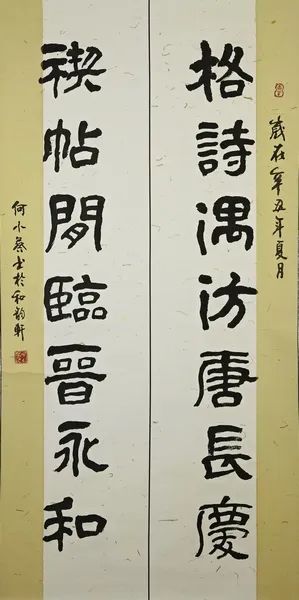 歲在辛丑年夏月
格詩偶仿唐長慶
禊帖閒臨晉永和
何小書於和韵軒